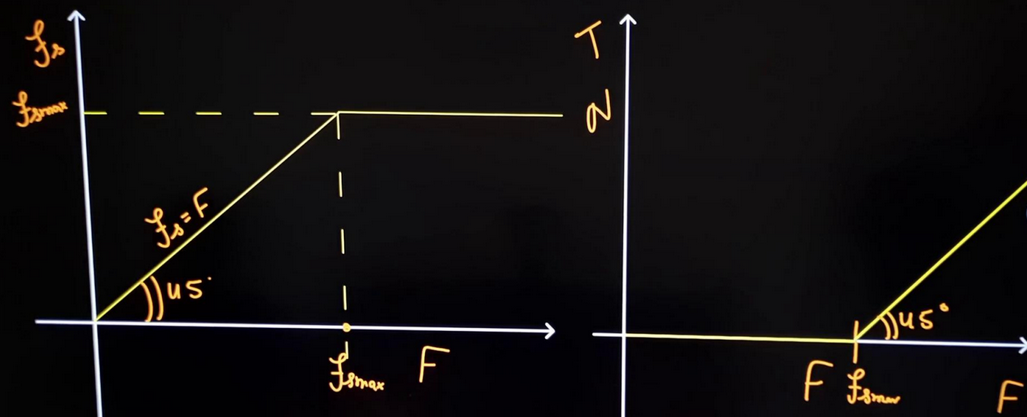 f_s
f_smax
f_s = F
45°
f_smax
F
T
N
45°
F
f_smax
F